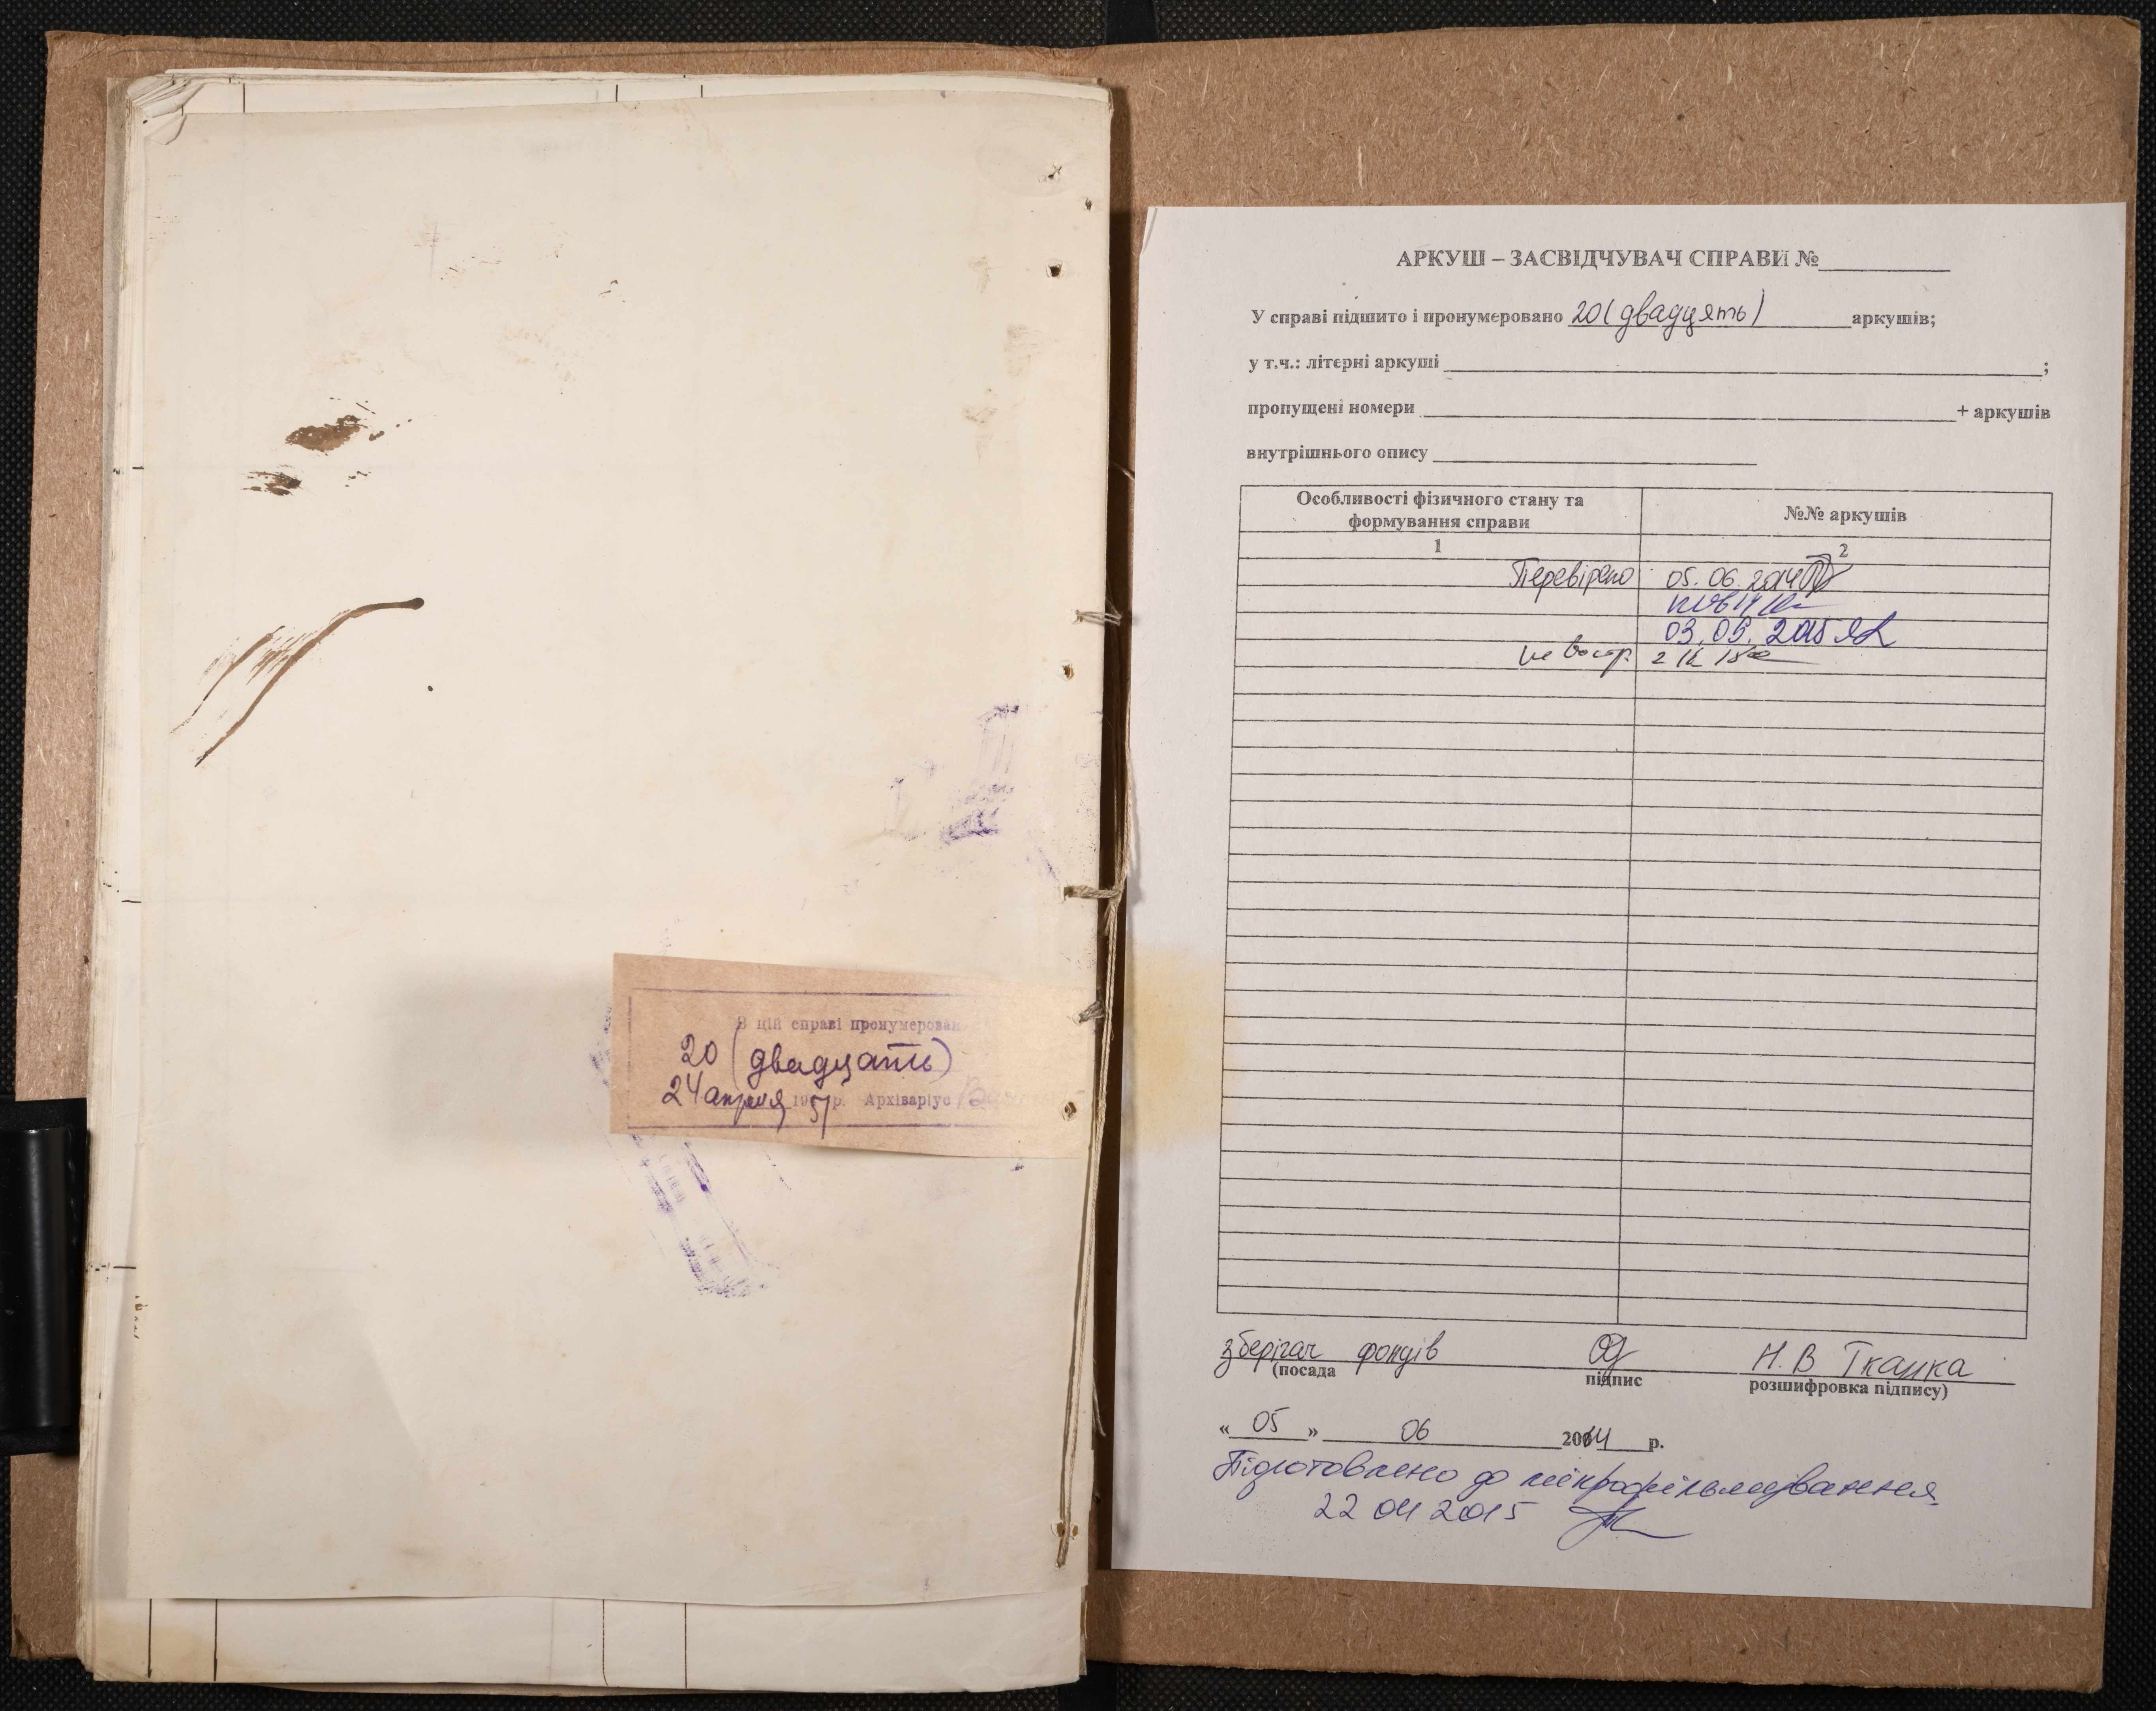 В цій справі пронумерован
20 (двадцать)
24 апреля 1951 р. Архіваріус
АРКУШ – ЗАСВІДЧУВАЧ СПРАВИ №
У справі підшито і пронумеровано 20 (двадцять) аркушів;
у т.ч.: літерні аркуші ;
пропущені номери + аркушів
внутрішнього опису
Особливості фізичного стану та формування справи
№№ аркушів
1
2
Перевірено 05.06.2014
03.05.2015
зберігач фондів Н. В Ткалка
(посада підпис розшифровка підпису)
« 05 » 06 2014 р.
Підготовлено до мікрофільмування
22 04 2015